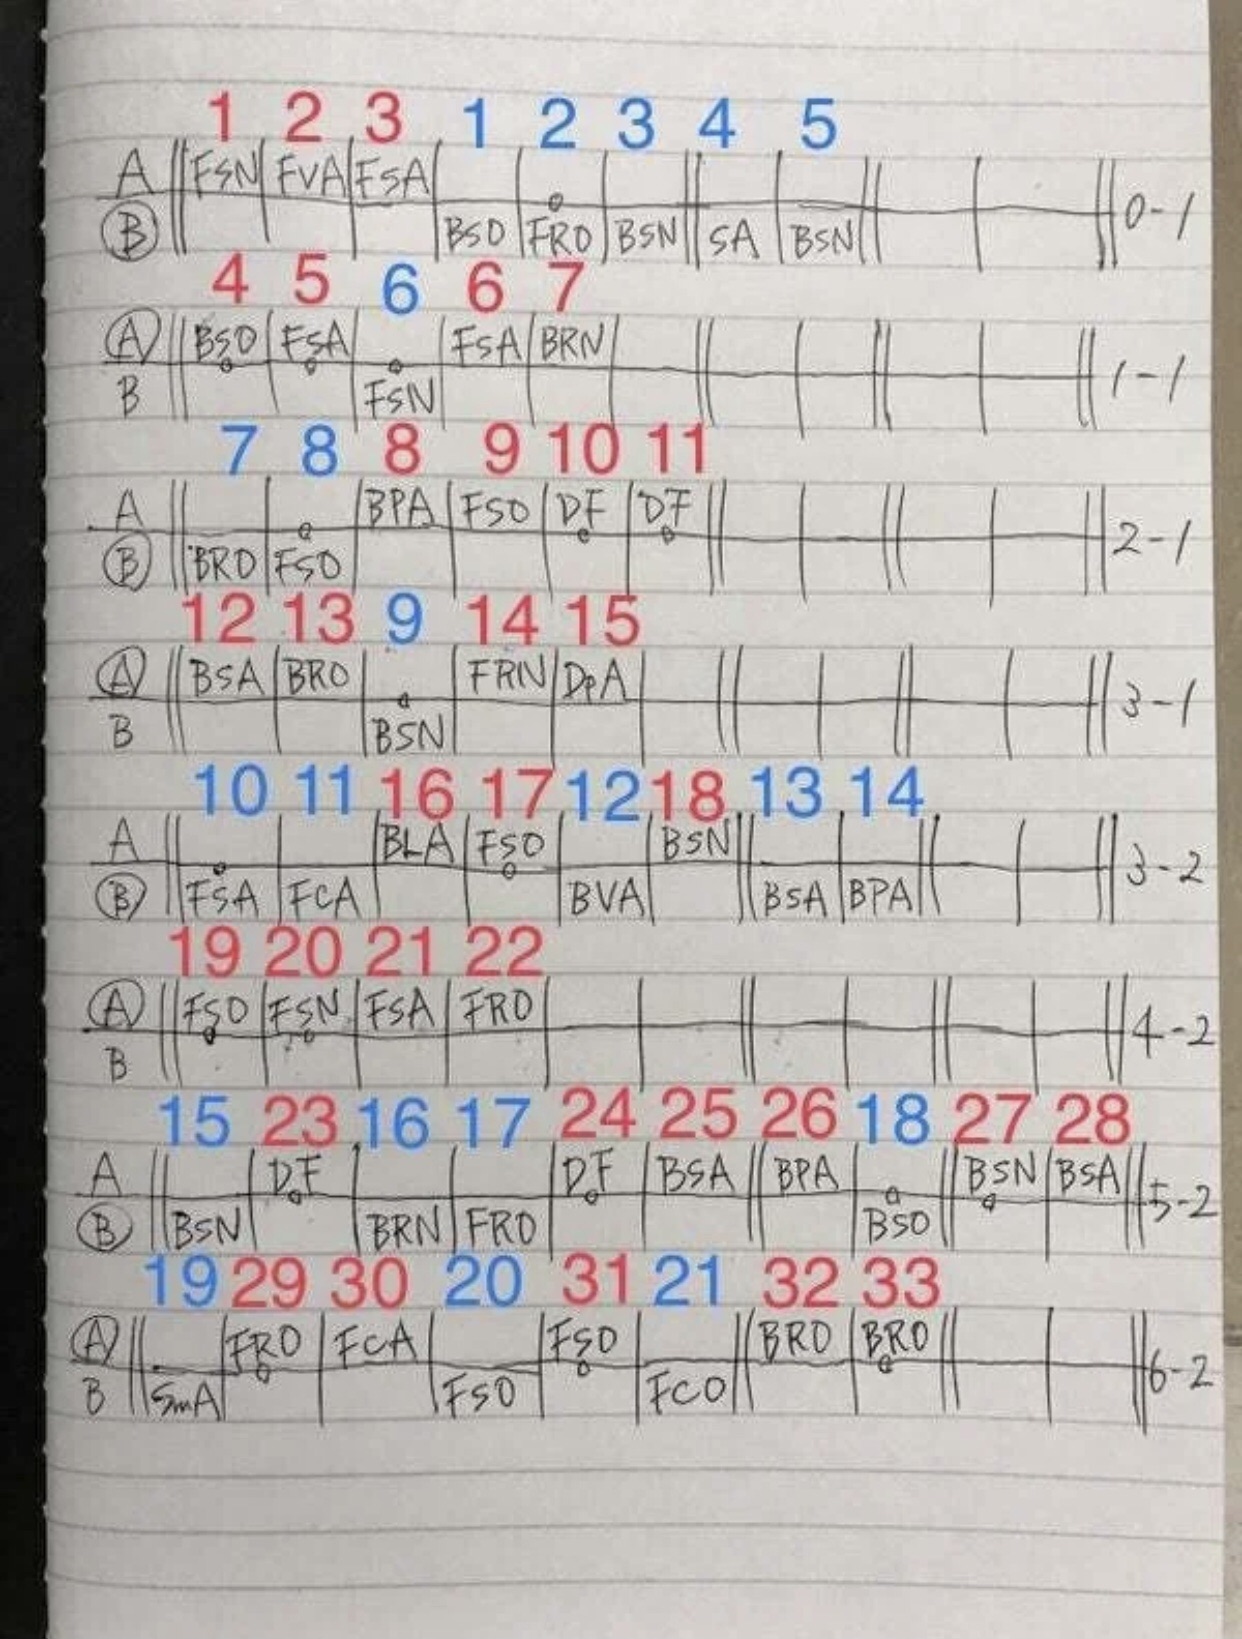 1 2 3 1 2 3 4 5
A FSN FVA FSA
B BSO FRO BSN SA BSN 0-1
4 5 6 6 7
A BSO FSA FSA BRN
B FSN 1-1
7 8 8 9 10 11
A BPA FSO DF DF
B BRO FSO 2-1
12 13 9 14 15
A BSA BRO FRN DPA
B BSN 3-1
10 11 16 17 12 18 13 14
A BLA FSO BSN
B FSA FCA BVA BSA BPA 3-2
19 20 21 22
A FSO FSN FSA FRO
B 4-2
15 23 16 17 24 25 26 18 27 28
A DF DF BSA BPA BSN BSA
B BSN BRN FRO BSO 5-2
19 29 30 20 31 21 32 33
A FRO FCA FSO BRO BRO
B SmA FSO FCO 6-2